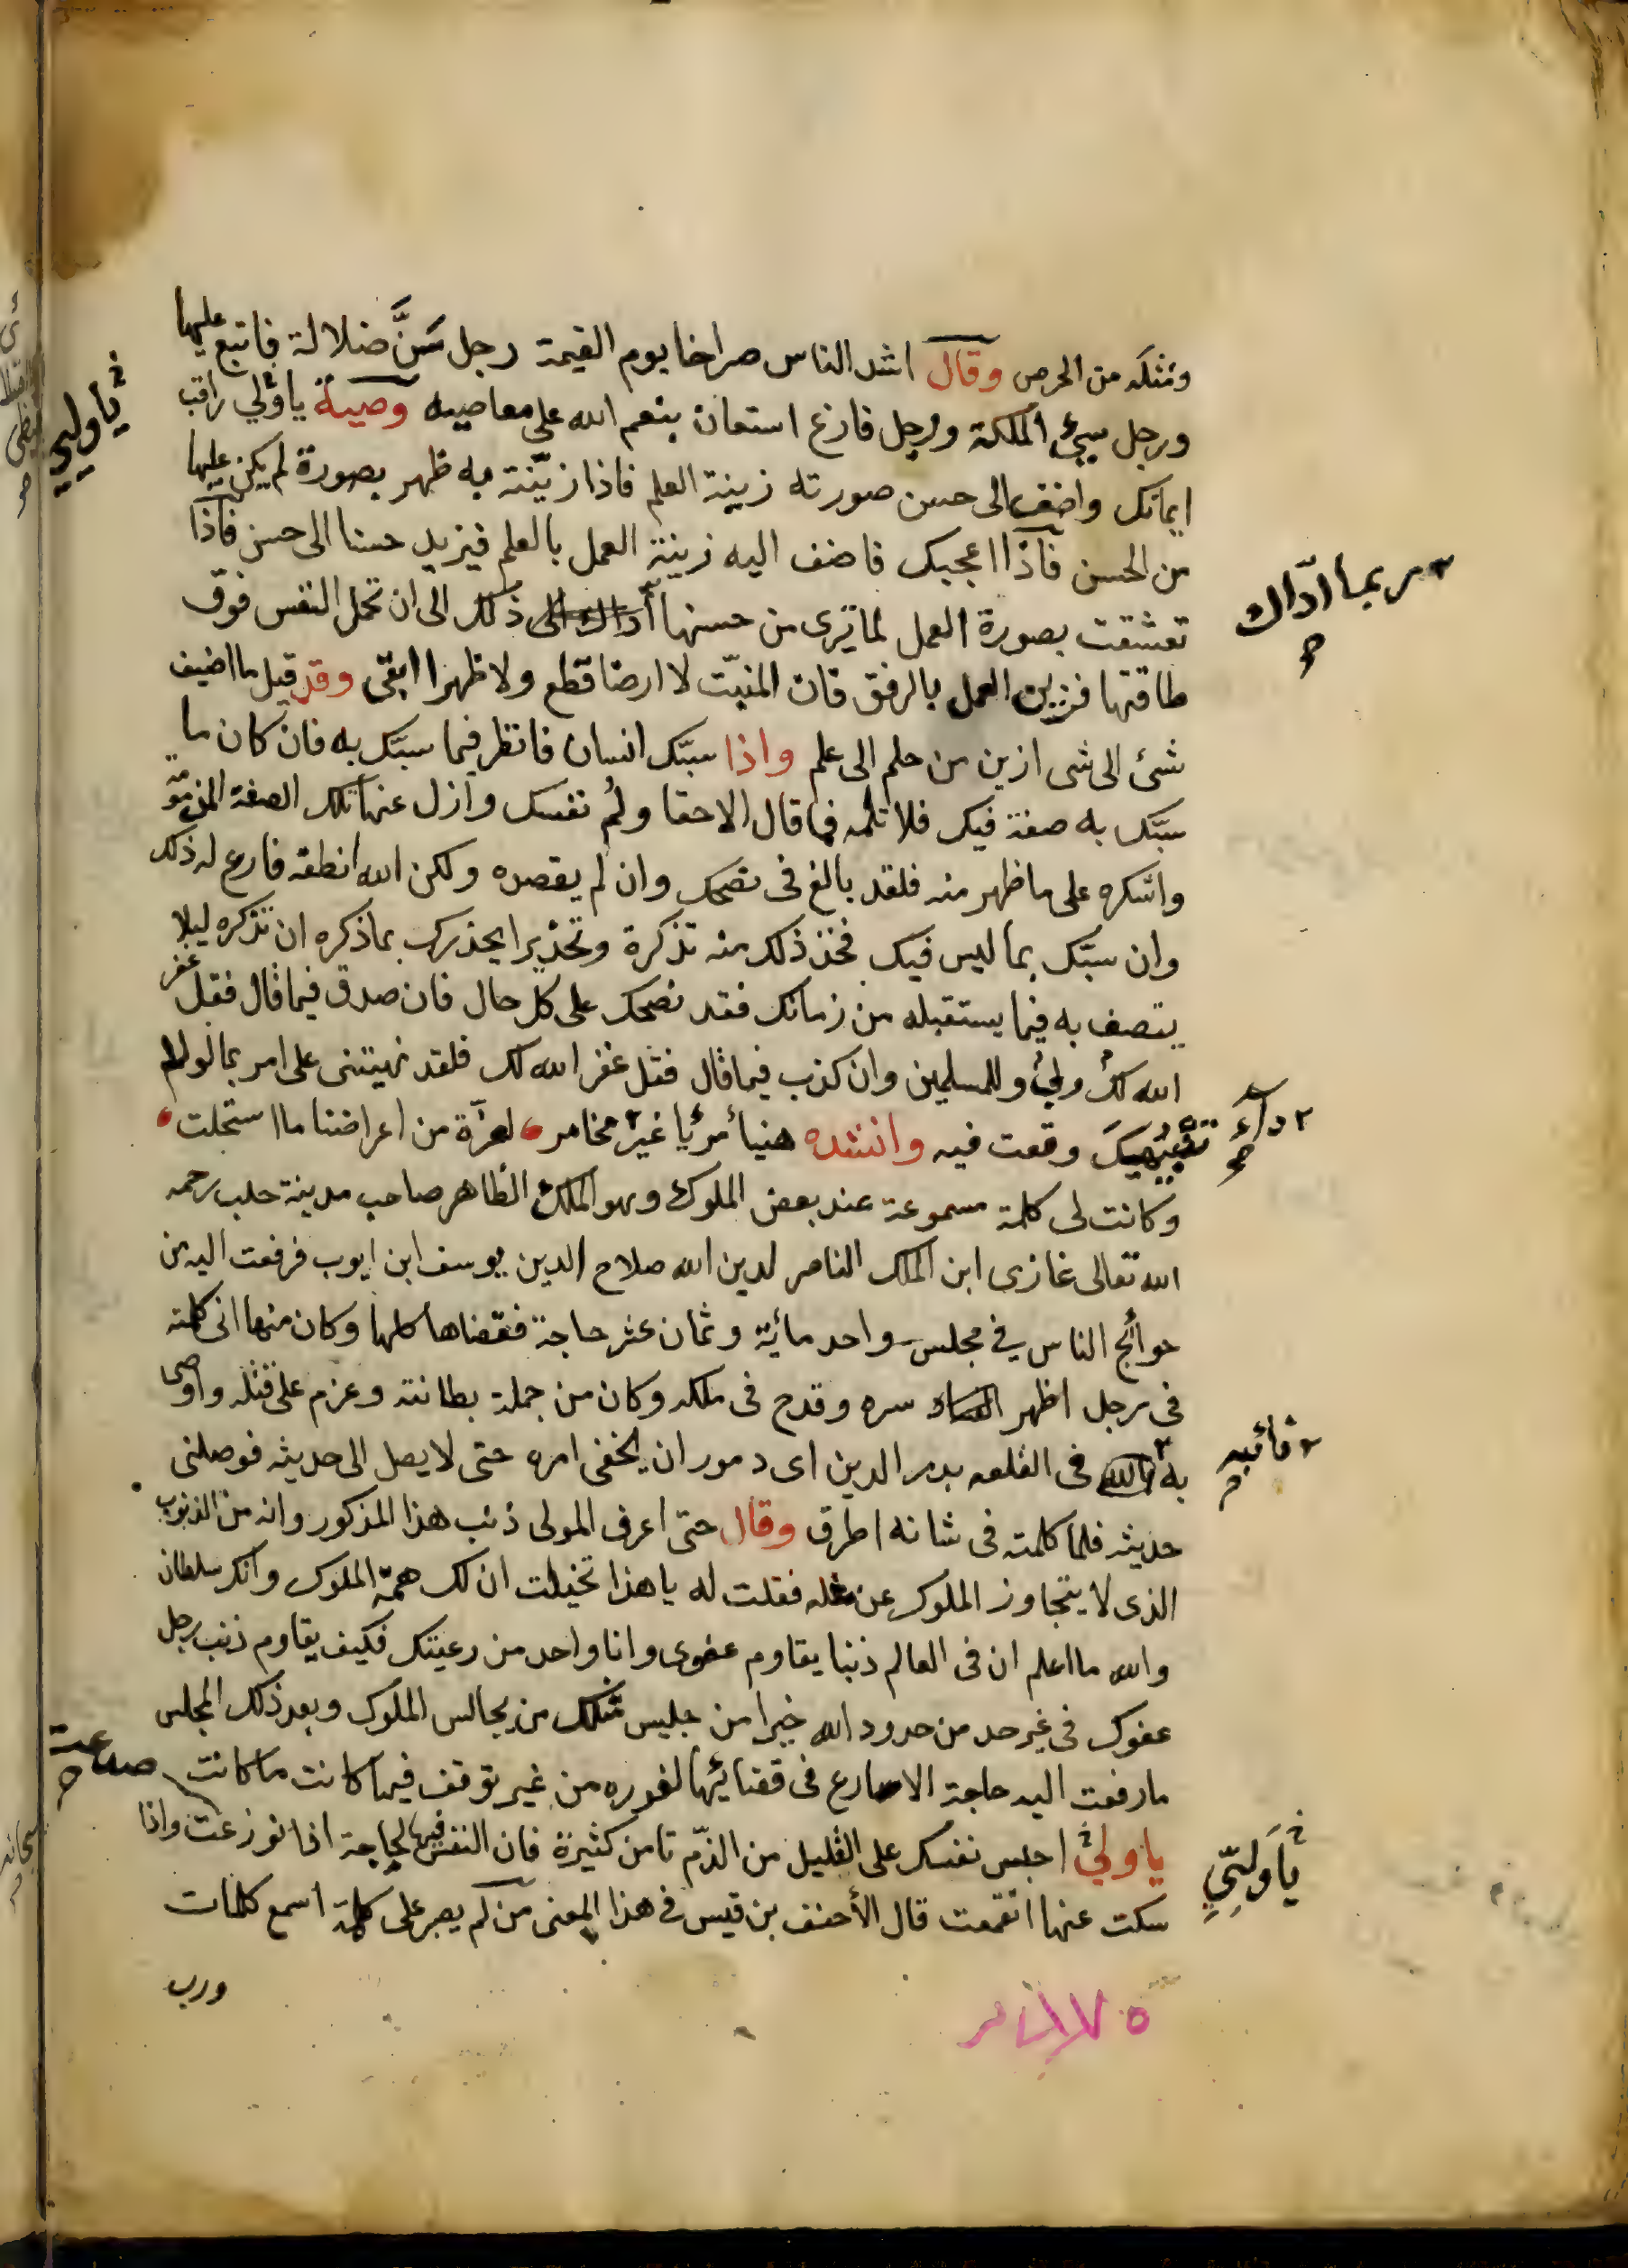 ومثله من الحرص وقال اشد الناس صراخا يوم القيمة رجل سَنَّ ضلالة فاتبع عليها
ورجل سيئ الملكة ورجل فارغ استعان بنعم الله على معاصيه وصية يا ولي راقب
يا وليي
ايمانك واضف الى حسن صورته زينة العلم فاذا زيّنته به ظهر بصورة لم يكن عليها
من الحسن فاذا اعجبك فاضف اليه زينة العمل بالعلم فيزيد حسنا الى حسن فاذا
تعشقت بصورة العمل لما ترى من حسنها ذلك الى ان تحمل النفس فوق
ربما ادّاك
طاقتها فزين العمل بالرفق فان المنبّت لا ارضا قطع ولا ظهرا ابقى وقد قيل ما اضيف
شئ الى شى ازين من حلم الى علم واذا سبّك انسان فانظر فيما سبّك به فان كان ما
سبّك به صفة فيك فلا تلمه فما قال الاحقا ولُم نفسك وازل عنها تلك الصفة المذمومة
واشكره على ما ظهر منه فلقد بالغ في نصحك وان لم يقصده ولكن الله انطقه فارع له ذلك
وان سبّك بما ليس فيك فخذ ذلك منه تذكرة وتحذيرا يحذرك بما ذكره ان تذكره ليلا
يتصف به فيما يستقبله من زمانك فقد نصحك على كل حال فان صدق فيما قال فقل غفر
الله لك ولي وللمسلمين وان كذب فيما قال فقل غفر الله لك فلقد نبهتنى على امر بما لولا
تنبيهك وقعت فيه وانشده هنيأ مريا غير مخامر لعزة من اعراضنا ما استحلت
داء
وكانت لى كلمة مسموعة عند بعض الملوك وهو الملك الظاهر صاحب مدينة حلب رحمه
الله تعالى غازى ابن الملك الناصر لدين الله صلاح الدين يوسف ابن ايوب فرفعت اليه من
حوائج الناس في مجلس واحد مائة وثمان عشر حاجة فقضاها كلها وكان منها انى كلمته
فى رجل اظهر سره وقدح فى ملكه وكان من جملة بطانته وعزم على قتله واوصى
به فى القلعه بدر الدين اى دمور ان يخفى امره حتى لا يصل الى حديثه فوصلنى
نائبه
حديثه فلما كلمته فى شانه اطرق وقال حتى اعرف المولى ذنب هذا المذكور وانه من الذنوب
الذى لا يتجاوز الملوك عن مثله فقلت له يا هذا تخيلت ان لك همة الملوك وانك سلطان
والله ما اعلم ان فى العالم ذنبا يقاوم عفوى وانا واحد من رعيتك فكيف يقاوم ذنب رجل
عفوك فى غير حد من حدود الله خيرا من جليس مثلك من يجالس الملوك وبعد ذلك المجلس
ما رفعت اليه حاجة الا سارع فى قضائها لفوره من غير توقف فيما كانت ما كانت
يا ولي احبس نفسك على القليل من الذم تامن كثيرة فان النفس فيها لجاجة اذا نوزعت واذا
يا وليّي
سكت عنها انقمعت قال الأحنف بن قيس فى هذا المعنى من لم يصبر على كلمة اسمع كلمات
ورب